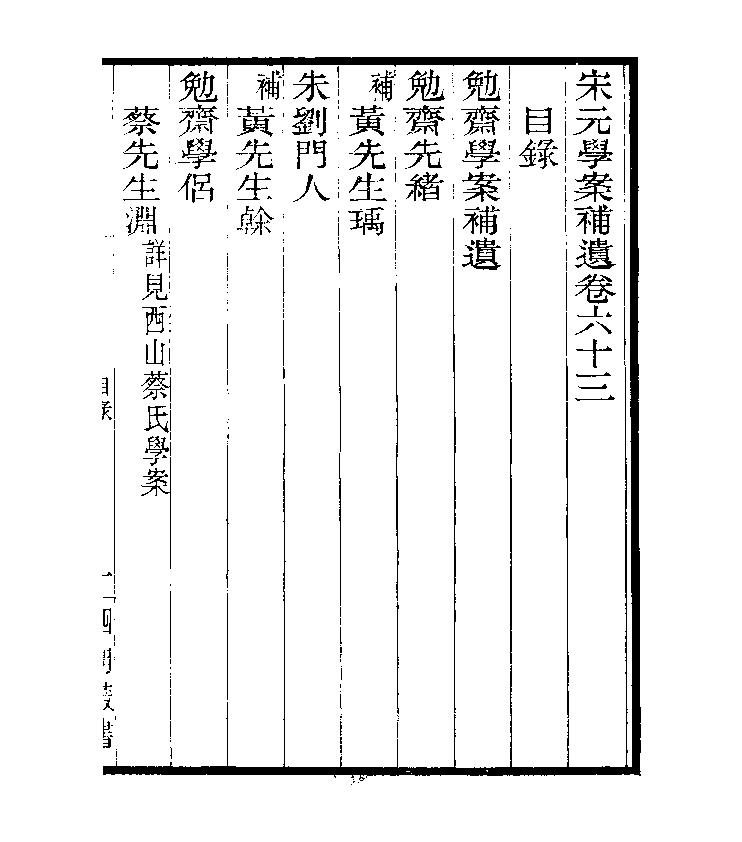 宋元學案補遺卷六十三
目錄
勉齋學案補遺
勉齋先緒
補黃先生瑀
朱劉門人
補黃先生榦
勉齋學侶
蔡先生淵詳見西山蔡氏學案
目錄
四明叢書